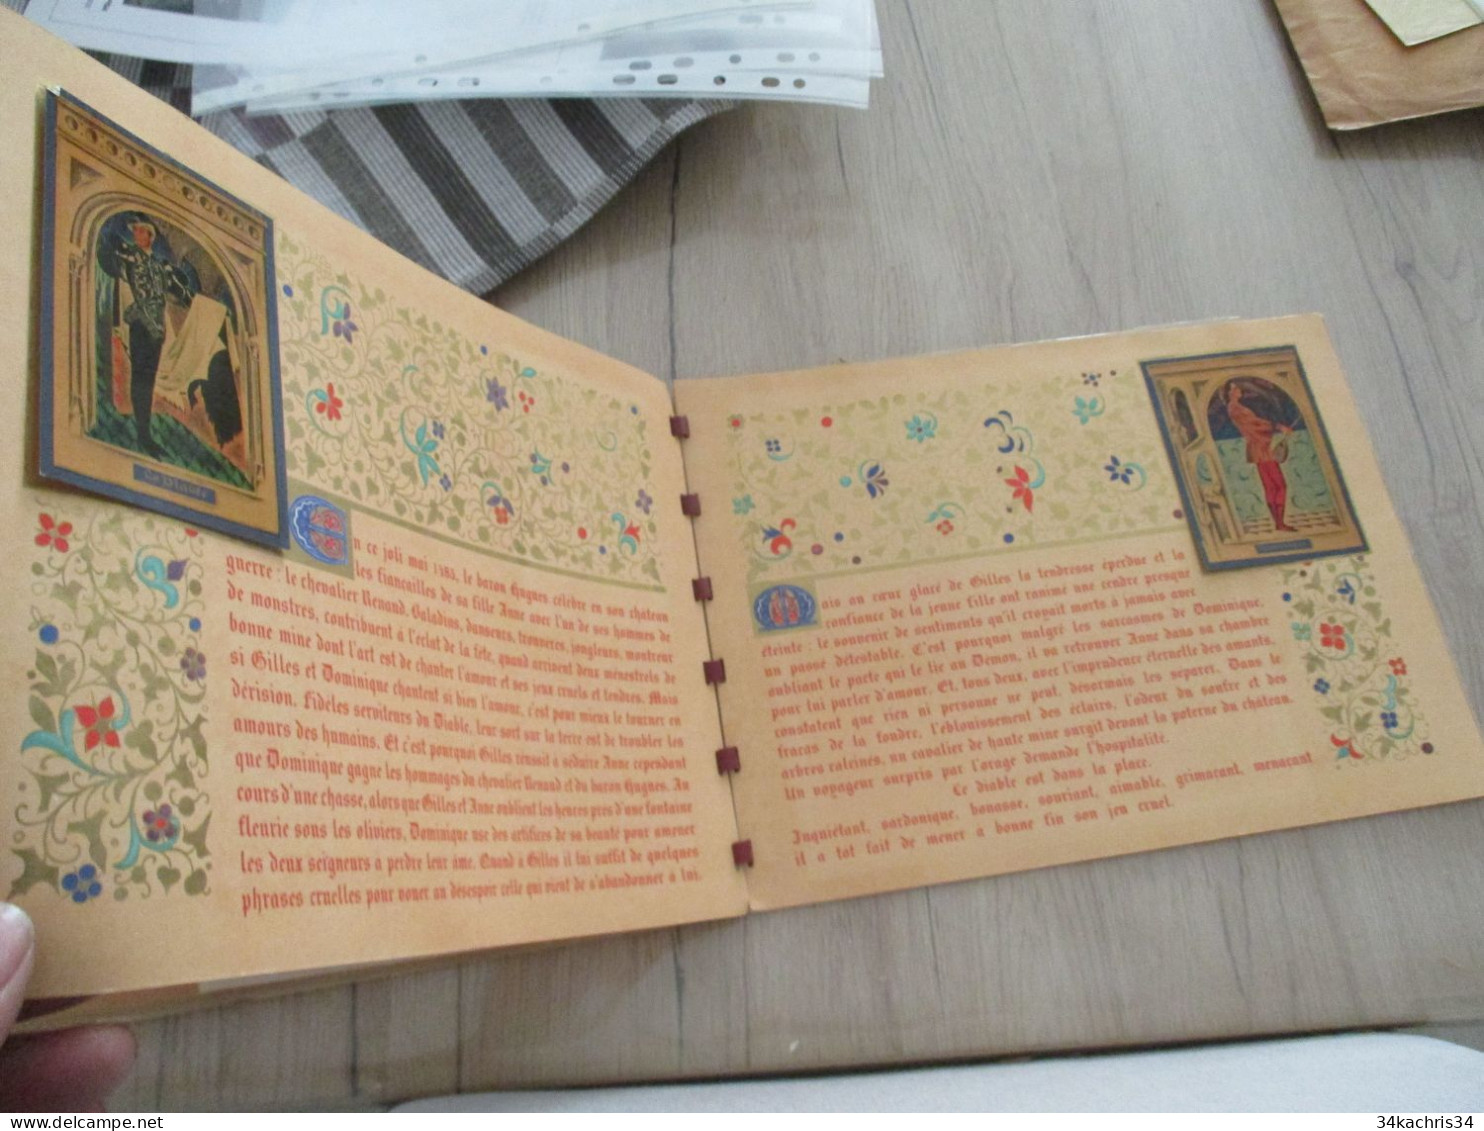 Le Diable
En ce joli mai 1485, le baron Hugues célèbre en son château
les fiancailles de sa fille Anne avec l'un de ses hommes de
guerre : le chevalier Renaud. Baladins, danseurs, trouveres, jongleurs, montreur
de monstres, contribuent à l'eclat de la fête, quand arrivent deux ménestrels de
bonne mine dont l'art est de chanter l'amour et ses jeux cruels et tendres. Mais
si Gilles et Dominique chantent si bien l'amour, c'est pour mieux le tourner en
dérision. Fidèles serviteurs du Diable, leur sort sur la terre est de troubler les
amours des humains. Et c'est pourquoi Gilles réussit à séduire Anne cependant
que Dominique gagne les hommages du chevalier Renaud et du baron Hugues. Au
cours d'une chasse, alors que Gilles et Anne oublient les heures pres d'une fontaine
fleurie sous les oliviers, Dominique use des artifices de sa beauté pour amener
les deux seigneurs a perdre leur âme. Quand à Gilles il lui suffit de quelques
phrases cruelles pour vouer au désespoir celle qui vient de s'abandonner à lui.
Mais au cœur glacé de Gilles la tendresse éperdue et la
confiance de la jeune fille ont ranimé une cendre presque
éteinte : le souvenir de sentiments qu'il croyait morts à jamais avec
un passé détestable. C'est pourquoi malgré les sarcasmes de Dominique,
oubliant le pacte qui le lie au Démon, il va retrouver Anne dans sa chambre
pour lui parler d'amour. Et, tous deux, avec l'imprudence éternelle des amants,
constatent que rien ni personne ne peut, désormais les séparer. Dans le
fracas de la foudre, l'éblouissement des éclairs, l'odeur du soufre et des
arbres calcinés, un cavalier de haute mine surgit devant la poterne du château.
Un voyageur surpris par l'orage demande l'hospitalité.
Le diable est dans la place.
Inquiétant, sardonique, bonasse, souriant, aimable, grimacant, menacant
il a tôt fait de mener a bonne fin son jeu cruel.
delcampe.net
34kachris34